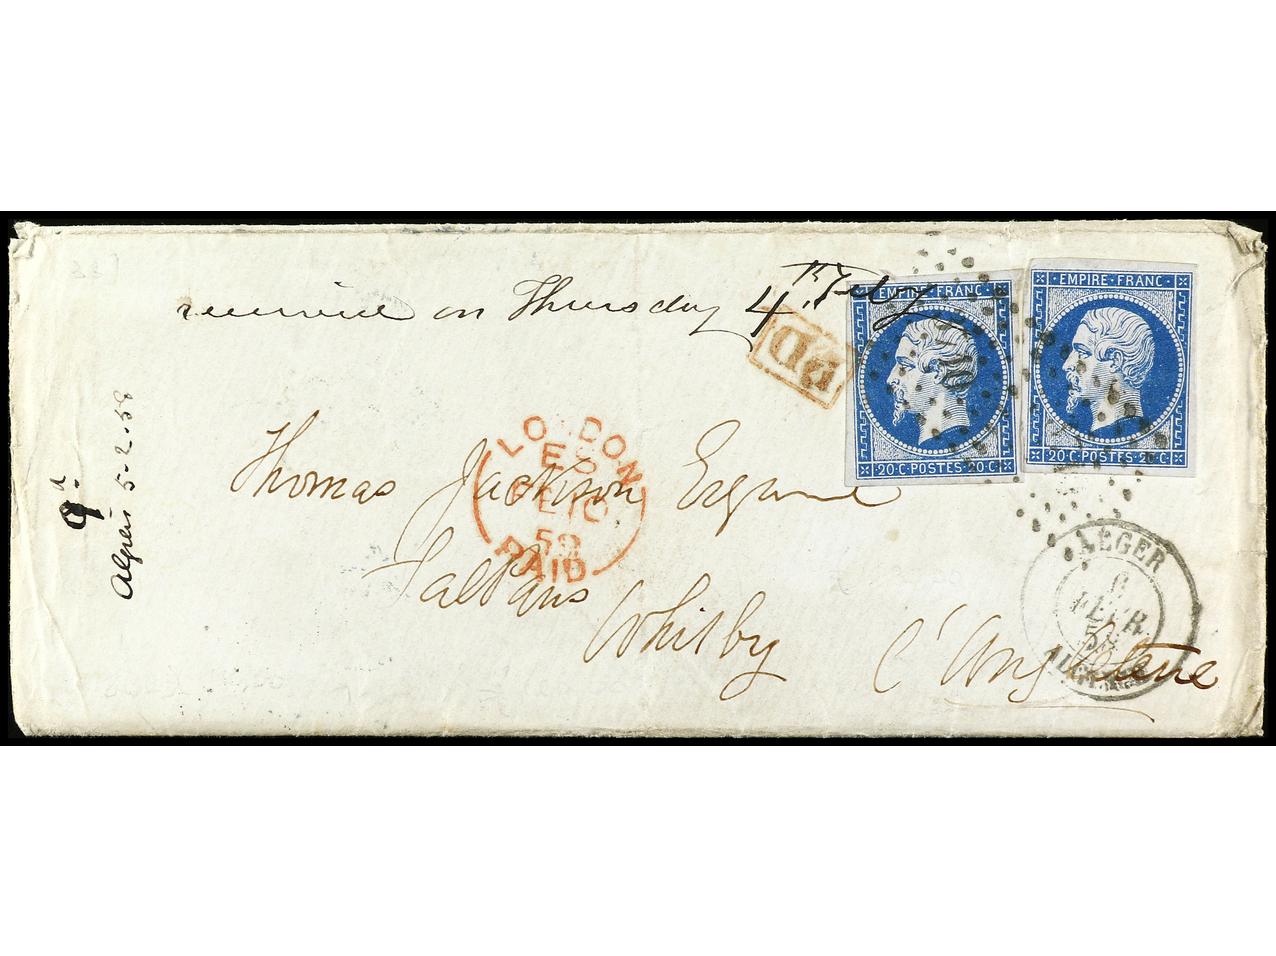 received on Thursday 4th Feby
PD
EMPIRE·FRANC
20·C·POSTES·20·C
EMPIRE·FRANC·
20·C·POSTES·20·C
Thomas Jackson Esquire
LONDON
FE 10
58
PAID
Whitby
l'Angleterre
ALGER
6
FEVR
58
9d
Algeri 5-2-58